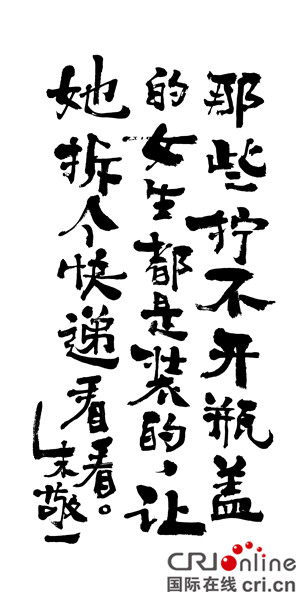 那些拧不开瓶盖
的女生都是装的，让
她拆个快递看看。
朱敬一
CRI online
国际在线 cri.cn